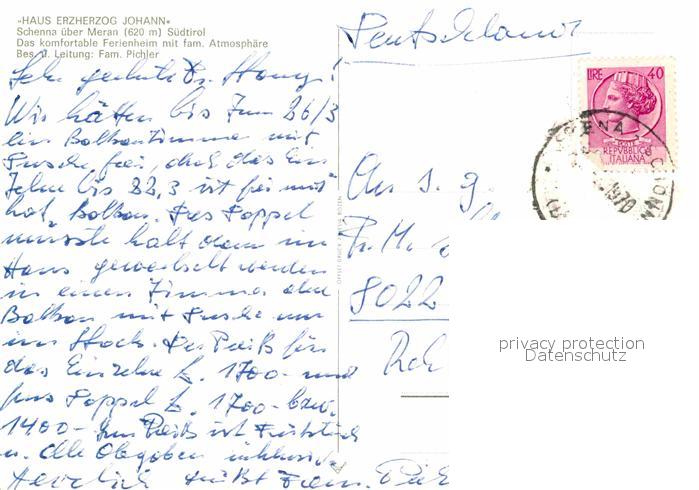 »HAUS ERZHERZOG JOHANN«
Schenna über Meran (620 m) Südtirol
Das komfortable Ferienheim mit fam. Atmosphäre
Bes. u. Leitung: Fam. Pichler
Sehr geehrte
Wir hätten bis zum 26/3
ein Balkonzimmer mit
Dusche frei, doch das Ein
zelne bis 22.3 ist frei und
hat Balkon. Das Doppel
müsste halt dann im
Haus gewechselt werden
in einen Zimmer ohne
Balkon mit Dusche nur
im Stock. Der Preiß für
das Einzelne L. 1700- und
fürs Doppel L. 1700- bzw.
1400- Im Preiß ist Frühstück
u. alle Abgaben inklusive
Herzlich grüßt Fam. Pich
Deutschland
LIRE 40
POSTE
REPVBBLICA
ITALIANA
1970
An s. g.
Fr. M.
8022
privacy protection
Datenschutz